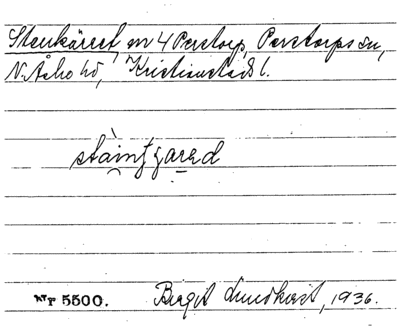 Stenkärret, en 4 Perstorp, Perstorps sn,
N. Åsbo hd, Kristianstads l.
stàinʃʒarəd
NrF 5500.
Birgit Lundkvist, 1936.